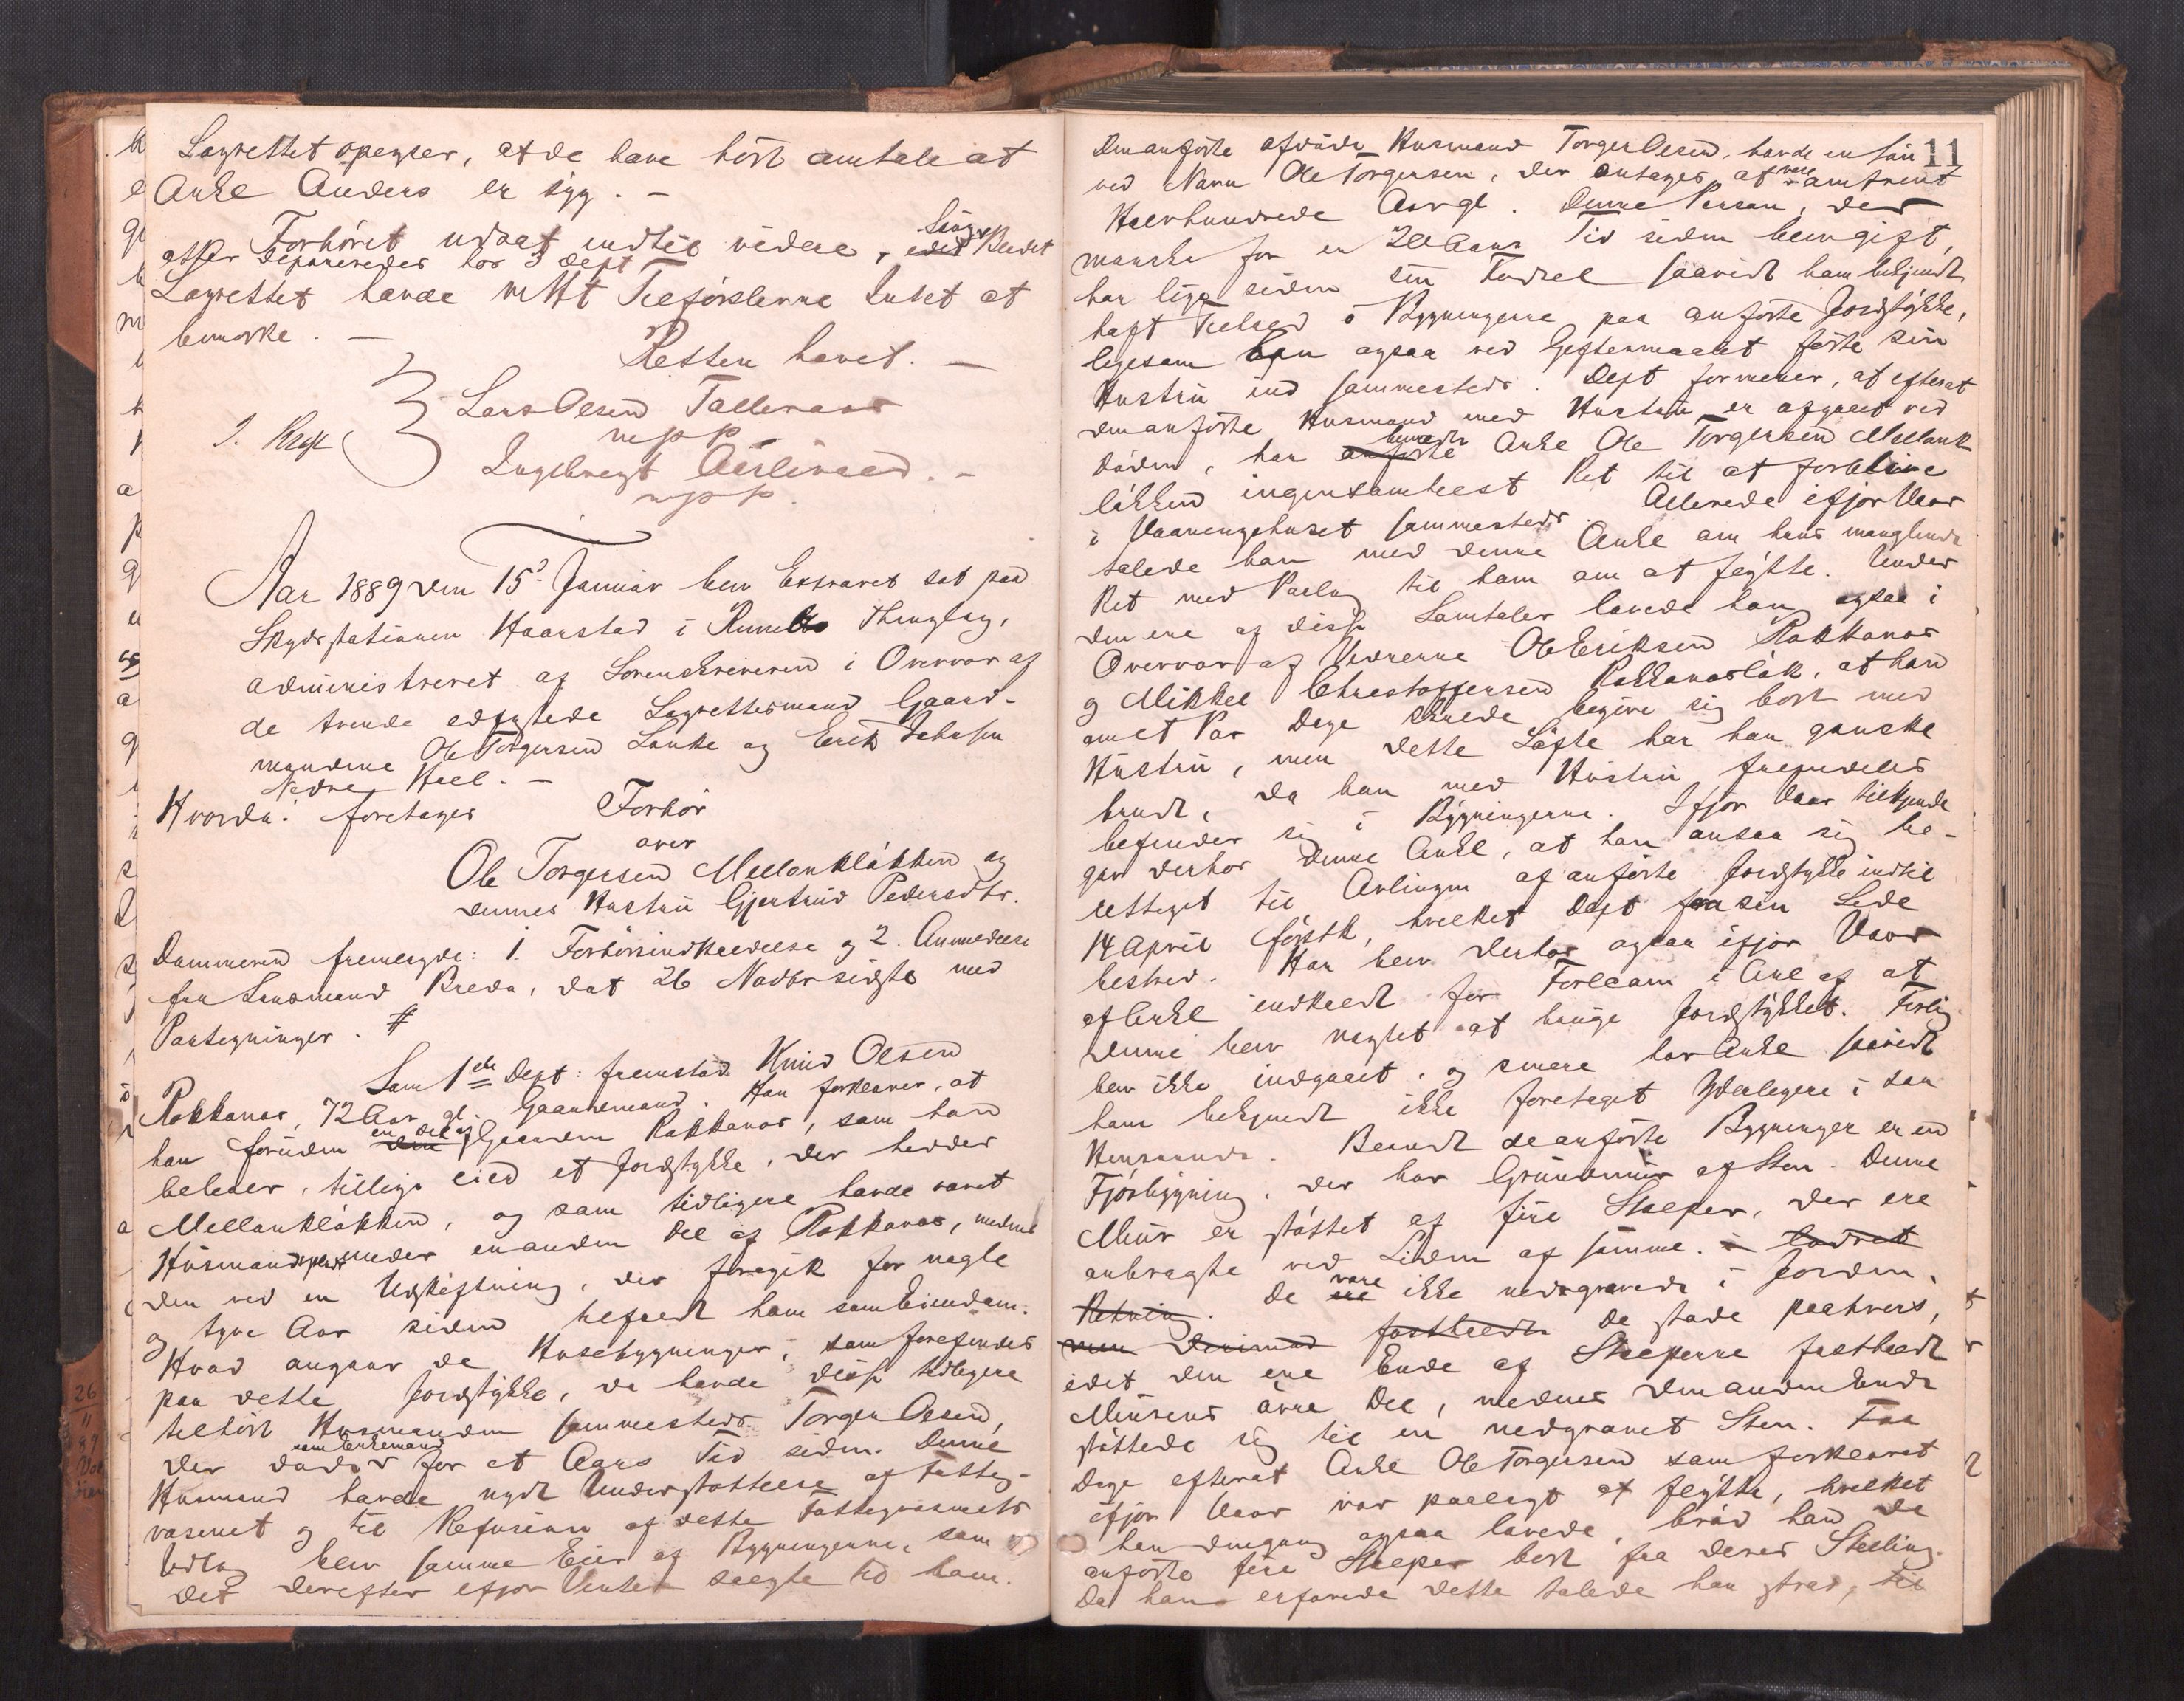 Lagrettet opgyver, at de have hört omtale at
Ankl Anders er syg. –
Forhöret udsat indtil videre,
atter
Lagrettet havde Intet at
bemærke. –
Retten hævet. –
Lars Olsen
mpp
Ingebregt
mpp.
Aar 1889 den 15de Januar blev Extraret sat paa
Skydsstationen Haarstad i Thinglag,
administreret af Sorenskriveren i Overvær af
de tvende edfæstede Lagrettesmænd Gaard-
mændene Ole Torgersen Lanke og Erik Johnsen
Nedre Heel. –
Hvorda: foretages Forhör
over
Ole Torgersen Mellonklökken og
dennes Hustru Gjertrud Pedersdtr.
Dommeren fremlagde: 1. Forhörsindkaldelse og 2. Anmeldelse
fra Lensmand Breda, dat 26 Novbr sidste med
Paategninger. #
Som 1ste Dept: fremstod Knud Olsen
Rokkones, 72 Aar gl. Gaardmand. Han forklarer, at
han foruden den en del af Gaarden Rokkones, som han
beboer, tillige eied et Jordstykke, der hedder
Mellonklökken, og som tidligere havde været
Husmandsplads under en anden Del af Rokkones, medens
den ved en Udskiftning, der foregik for nogle
og tyve Aar siden tilfaldt ham som Eiendom.
Hvad angaar de Husebygninger, som forefindes
paa dette Jordstykke, da havde disse tidligere
tilhört Husmanden sammesteds Torger Olsen,
der döde som Enkemand for et Aars Tid siden. Denne
Husmand havde nydt Understöttelse af Fattig-
væsenet og til Refusion af dette Fattigvæsenets
Udlæg blev samme Eier af Bygningerne, som
det derefter ifjor Vinter solgte til ham.
11
Den anförte afdöde Husmand Torger Olsen, havde en Sön
ved Navn Ole Torgersen, der antages at være omtrent
Halvhundrede Aar gl. Denne Person, der
maaske for en 20 Aars Tid siden blev gift,
har lige siden sin Födsel saavidt ham bekjendt
haft Tilhold i Bygningerne paa anförte Jordstykke,
ligesom han ogsaa ved Giftermaalet förte sin
Hustru ind sammesteds. Dept formener, at efterat
den anförte Husmand med Hustru er afgaaet ved
Döden, har anförte Ankl Ole Torgersen Mellonk
lökken ingensomhelst Ret til at forblive
i Vaaningshuset sammesteds. Allerede ifjor Vaar
talede han med denne Ankl om hans manglende
Ret med Paalæg til ham om at flytte. Under
den ene af disse Samtaler lovede han ogsaa i
Overvær af Vidnerne Ole Eriksen Rokkones
og Mikkel Christoffersen Rokkoneslök, at han
om et Par Dage skulde begive sig bort med
Hustru, men dette Löfte har han ganske
brudt, da han med Hustru fremdeles
befinder sig i Bygningerne. Ifjor Vaar tilkjende
gav derhos denne Ankl, at han ansaa sig be-
rettiget til Avlingen af anförte Jordstykke indtil
14 April förstk, hvilket Dept fra sin Side
bestred. Han blev derhos ogsaa ifjor Vaar
af Ankl indkaldt for Forliccom i Anl af at
denne blev nægtet at bruge Jordstykket. Forlig
blev ikke indgaaet, og senere har Ankl saavidt
ham bekjendt ikke foretaget Yderligere i saa
Henseende. Blandt de anförte Bygninger er en
Fjösbygning, der har Grundmur af Sten. Denne
Muur er stöttet af fire Stolper, der ere
anbragte ved Siden af samme. i lodret
Retning. De ere vare ikke nedgravede i Jorden,
men derimod fastholdt De stode paa tvers,
idet den ene Ende af Stolperne fastholdt
Murens övre Del, medens den anden Ende
stöttede sig til en nedgravet Sten. Faa
Dage efterat Ankl Ole Torgersen som forklaret
ifjor Vaar var paalagt at flytte, hvilket
han dengang ogsaa lovede, bröd han de
anförte fire Stolper bort fra deres Stilling.
Da han erfarede dette talede han strax, til